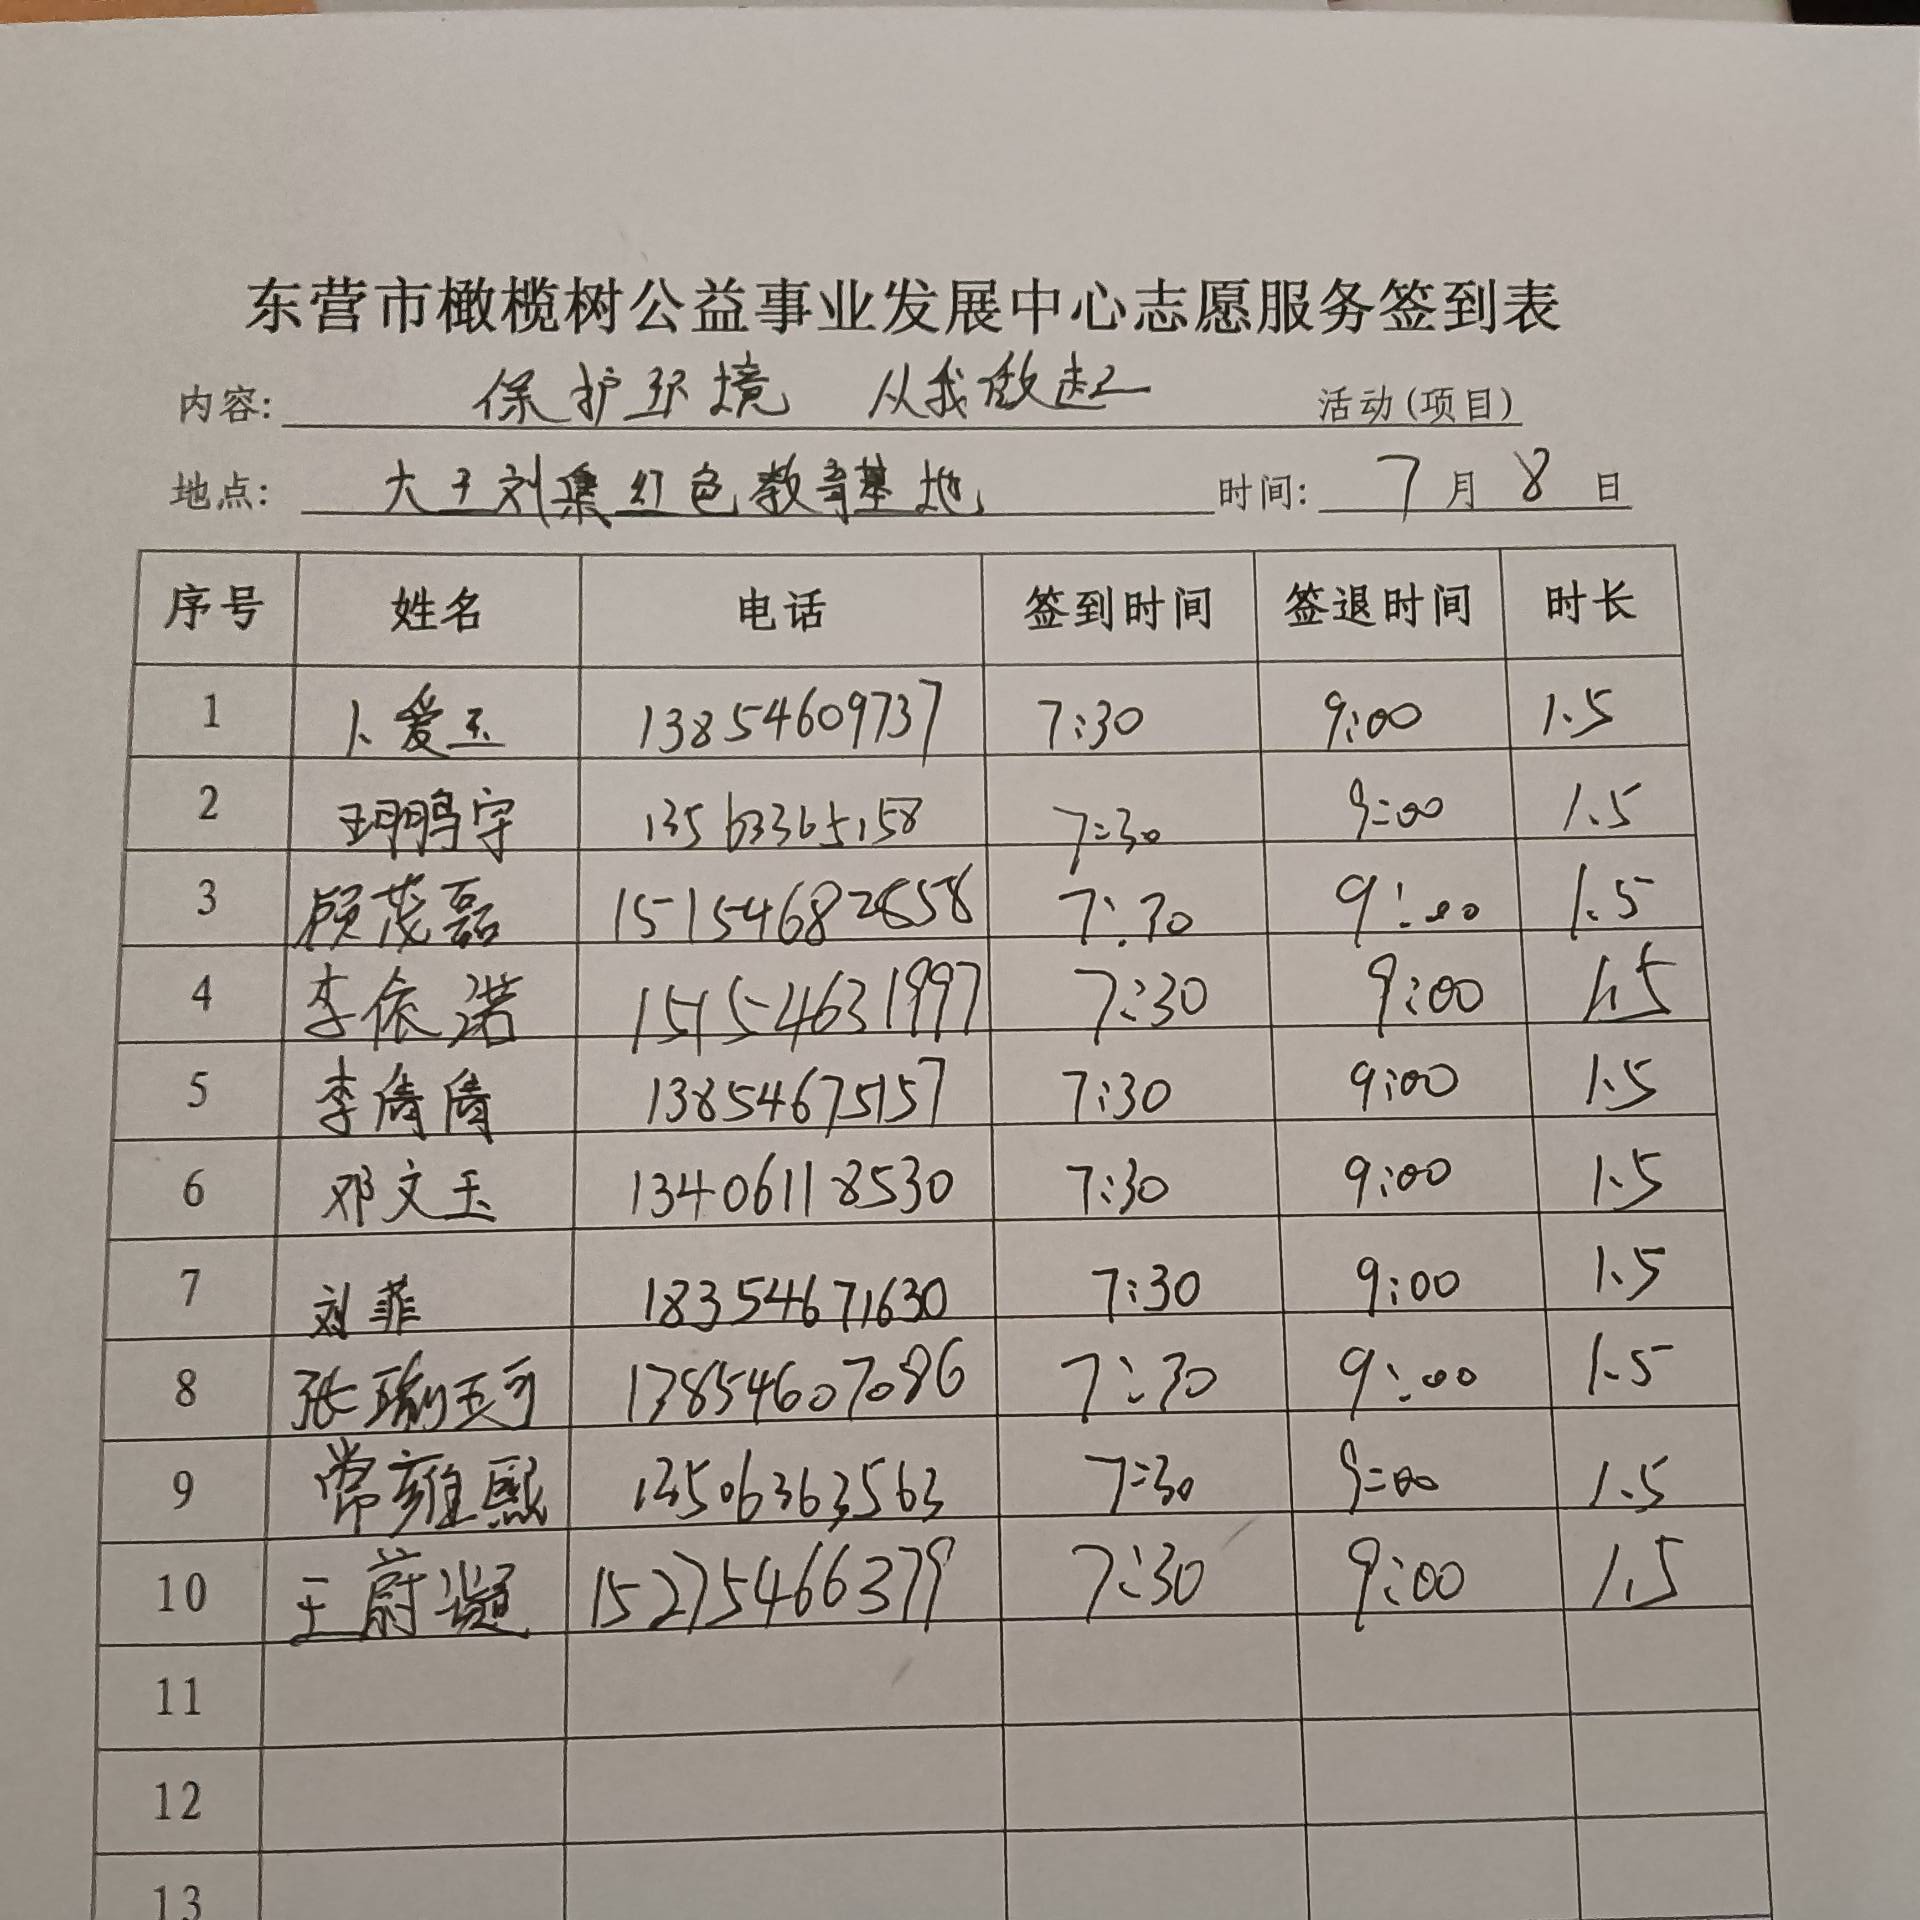 东营市橄榄树公益事业发展中心志愿服务签到表
内容: 保护环境 从我做起 活动(项目)
地点: 大王刘集红色教育基地 时间: 7月8日
序号 姓名 电话 签到时间 签退时间 时长
1 卜爱玉 13854609737 7:30 9:00 1.5
2 鹏宇 13563365158 7:30 9:00 1.5
3 顾茂磊 15154682658 7:30 9:00 1.5
4 李依诺 15154631997 7:30 9:00 1.5
5 李倩倩 13854675157 7:30 9:00 1.5
6 邓文玉 13406118530 7:30 9:00 1.5
7 刘菲 18354671630 7:30 9:00 1.5
8 张瑜珂 13854607086 7:30 9:00 1.5
9 常雍熙 13506363563 7:30 9:00 1.5
10 王蔚凝 15275466379 7:30 9:00 1.5
11
12
13